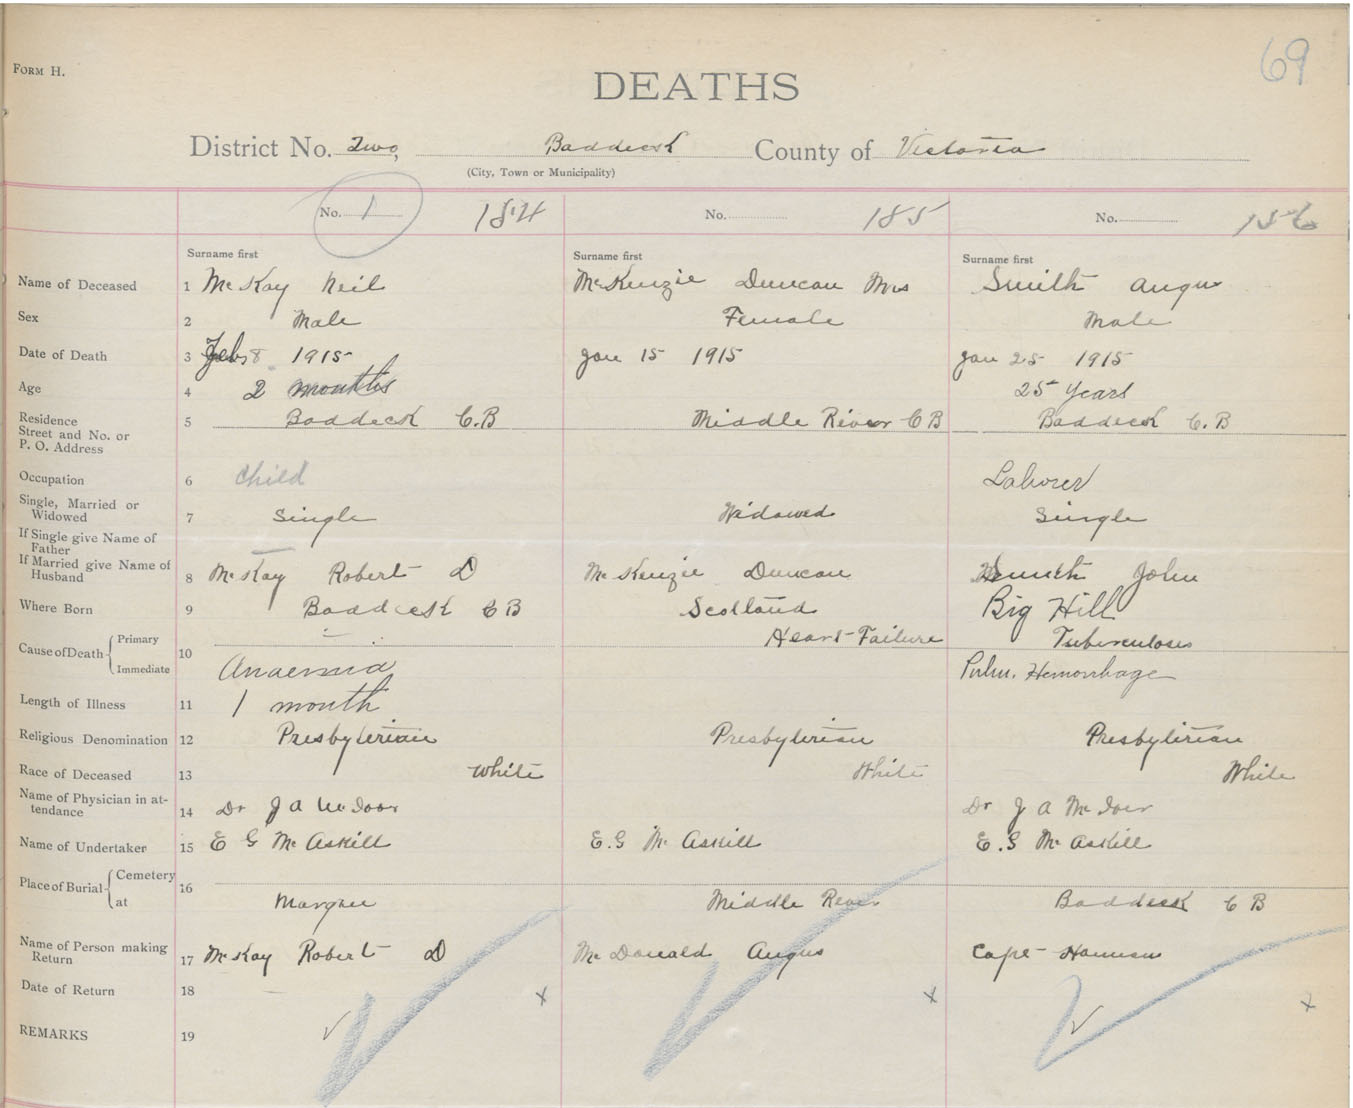 69
FORM H.
DEATHS
District No. Two, Baddeck County of Victoria
(City, Town or Municipality)
No. 1 184 No. 185 No. 156
Surname first Surname first Surname first
Name of Deceased 1 McKay Neil McKenzie Duncan Mrs Smith Angus
Sex 2 Male Female Male
Date of Death 3 Feb 8 1915 Jan 15 1915 Jan 25 1915
Age 4 2 months 25 Years
Residence Street and No. or P. O. Address 5 Baddeck C.B Middle River C B Baddeck C.B
Occupation 6 Child Laborer
Single, Married or Widowed 7 Single Widowed Single
If Single give Name of Father
If Married give Name of Husband 8 McKay Robert D McKenzie Duncan Smith John
Where Born 9 Baddeck C B Scotland Big Hill
Cause of Death Primary Heart Failure Tuberculosis
10
Immediate Anaemia Pulm. Hemorrhage
Length of Illness 11 1 month
Religious Denomination 12 Presbyterian Presbyterian Presbyterian
Race of Deceased 13 White White White
Name of Physician in attendance 14 Dr J A Dr J A
Name of Undertaker 15 E G McAskill E.G McAskill E.G McAskill
Place of Burial Cemetery 16
at Margaree Middle River Baddeck C B
Name of Person making Return 17 McKay Robert D McDonald Angus Capt
Date of Return 18 x x x
REMARKS 19